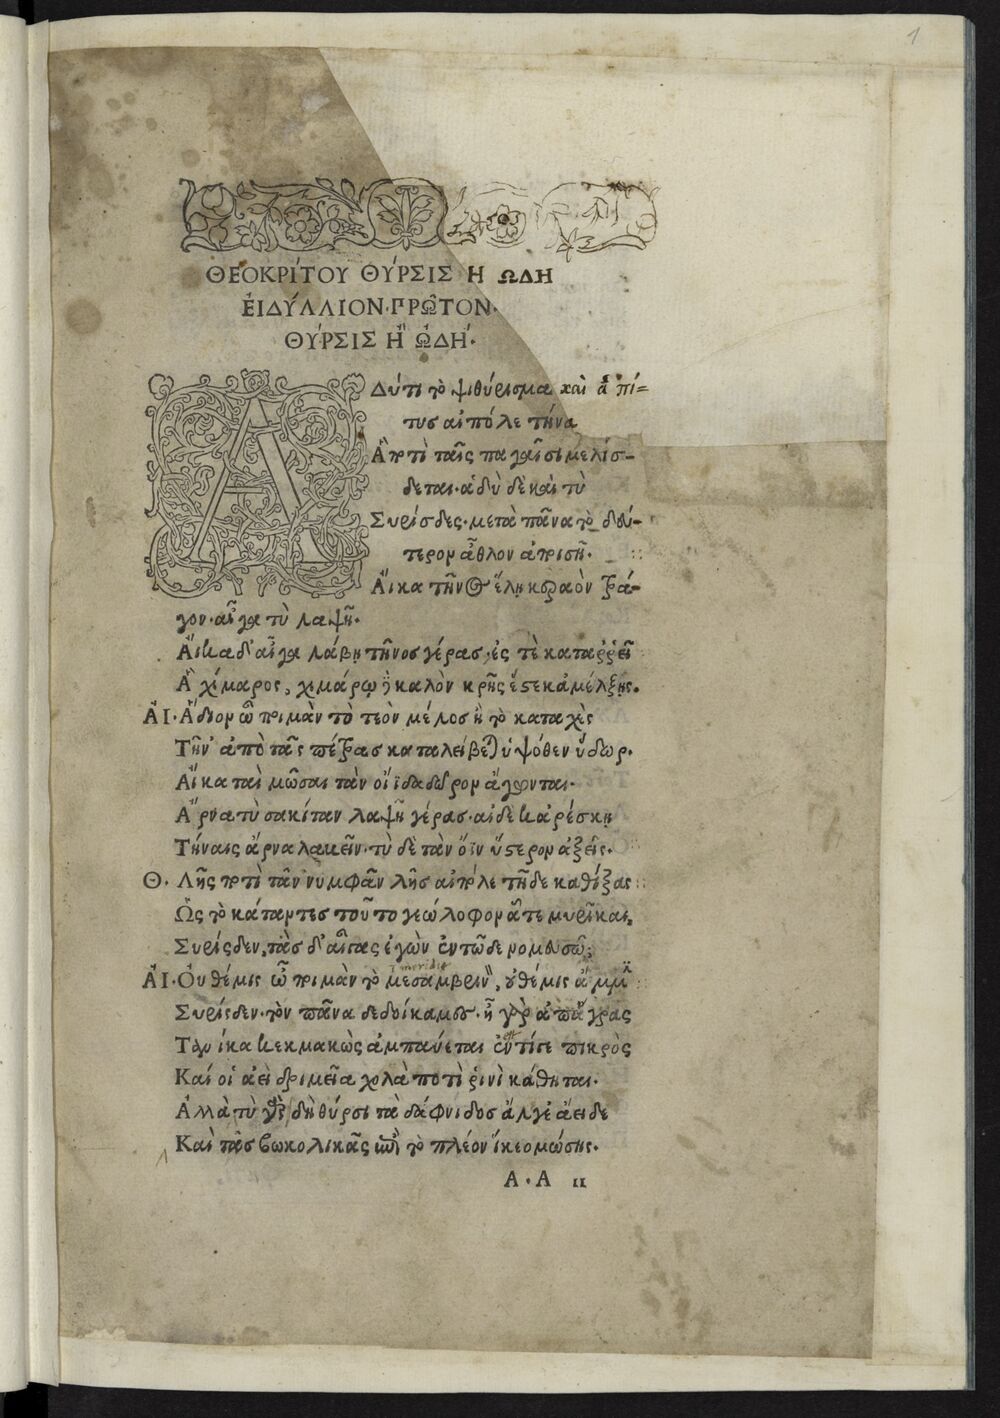 1
ΘΕΟΚΡΙΤΟΥ ΘΥΡΣΙΣ Η ΩΔΗ
ΕΙΔΥΛΛΙΟΝ·ΠΡΩ͂ΤΟΝ·
ΘΥΡΣΙΣ Ἢ ὨΔΗ·
ΑΔύ τι τὸ ψιθύρισμα καὶ ἁ πί=
τυσ αἰπόλε τήνα
Ἃ ποτὶ ταῖς παγαῖσι μελίσ-
δεται·ἁδὺ δὲ καὶ τὺ
Συρίσδες·μετὰ πᾶνα τὸ δού-
τερον ἆθλον ἀποισῇ·
Αἴκα τῆνος ἕλῃ κεραὸν τρά-
γον·αἶγα τὺ λαψῇ·
Αἴκα δ'αἶγα λάβῃ τῆνοσ γέρασ,ἐς τὲ καταῤῥεῖ
Ἁ χίμαρος, χιμάρῳ δὲ καλὸν κρῆς ἔστε κ'ἀμέλξῃς.
ΑΙ·Ἅδιον ὦ ποιμὰν τὸ τεὸν μέλοσ ἢ τὸ καταχὲς
Τῆν' ἀπὸ τᾶς πέτρας καταλείβεται ὑψόθεν ὕδωρ.
Αἴκα ταὶ μῶσαι τὰν οἴϊδα δῶρον ἄγωνται·
Ἄρνα τὺ σακίταν λαψῇ γέρασ·αἰδέ κ'ἀρέσκῃ
Τήναις ἄρνα λαβεῖν·τὺ δὲ τὰν ὄϊν ὕστερον ἀξεῖς·
Θ· Λῇς ποτὶ τᾶν νυμφᾶν λῇσ αἰπόλε τῇδε καθίξας
Ὡς τὸ κάταντες τοῦτο γεώλοφον ἅτε μυρῖκαι,
Συρίσδεν,τὰσ δ'αἶγας ἐγὼν ἐν τῶδε νομευσῶ;
ΑΙ·Οὐ θέμις ὦ ποιμὰν τὸ μεσαμβρινὸν, οὐ θέμις ἄμμιν
Συρίσδεν·τὸν πᾶνα δεδοίκαμες·ἦ γὰρ ἀπ'ἄγρας
Τανίκα κεκμακὼς ἀμπαύεται ἐντί γε πικρὸς
Καί οἱ ἀεὶ δριμεῖα χολὰ ποτὶ ῥινὶ κάθηται.
Ἀλλὰ τὺ γὰρ δὴ θύρσι τὰ δάφνιδος ἄλγε' ἀείδες
Καὶ τᾶσ βωκολικᾶς ἐπὶ τὸ πλέον ἵκεο μώσης.
Α·Α ιι